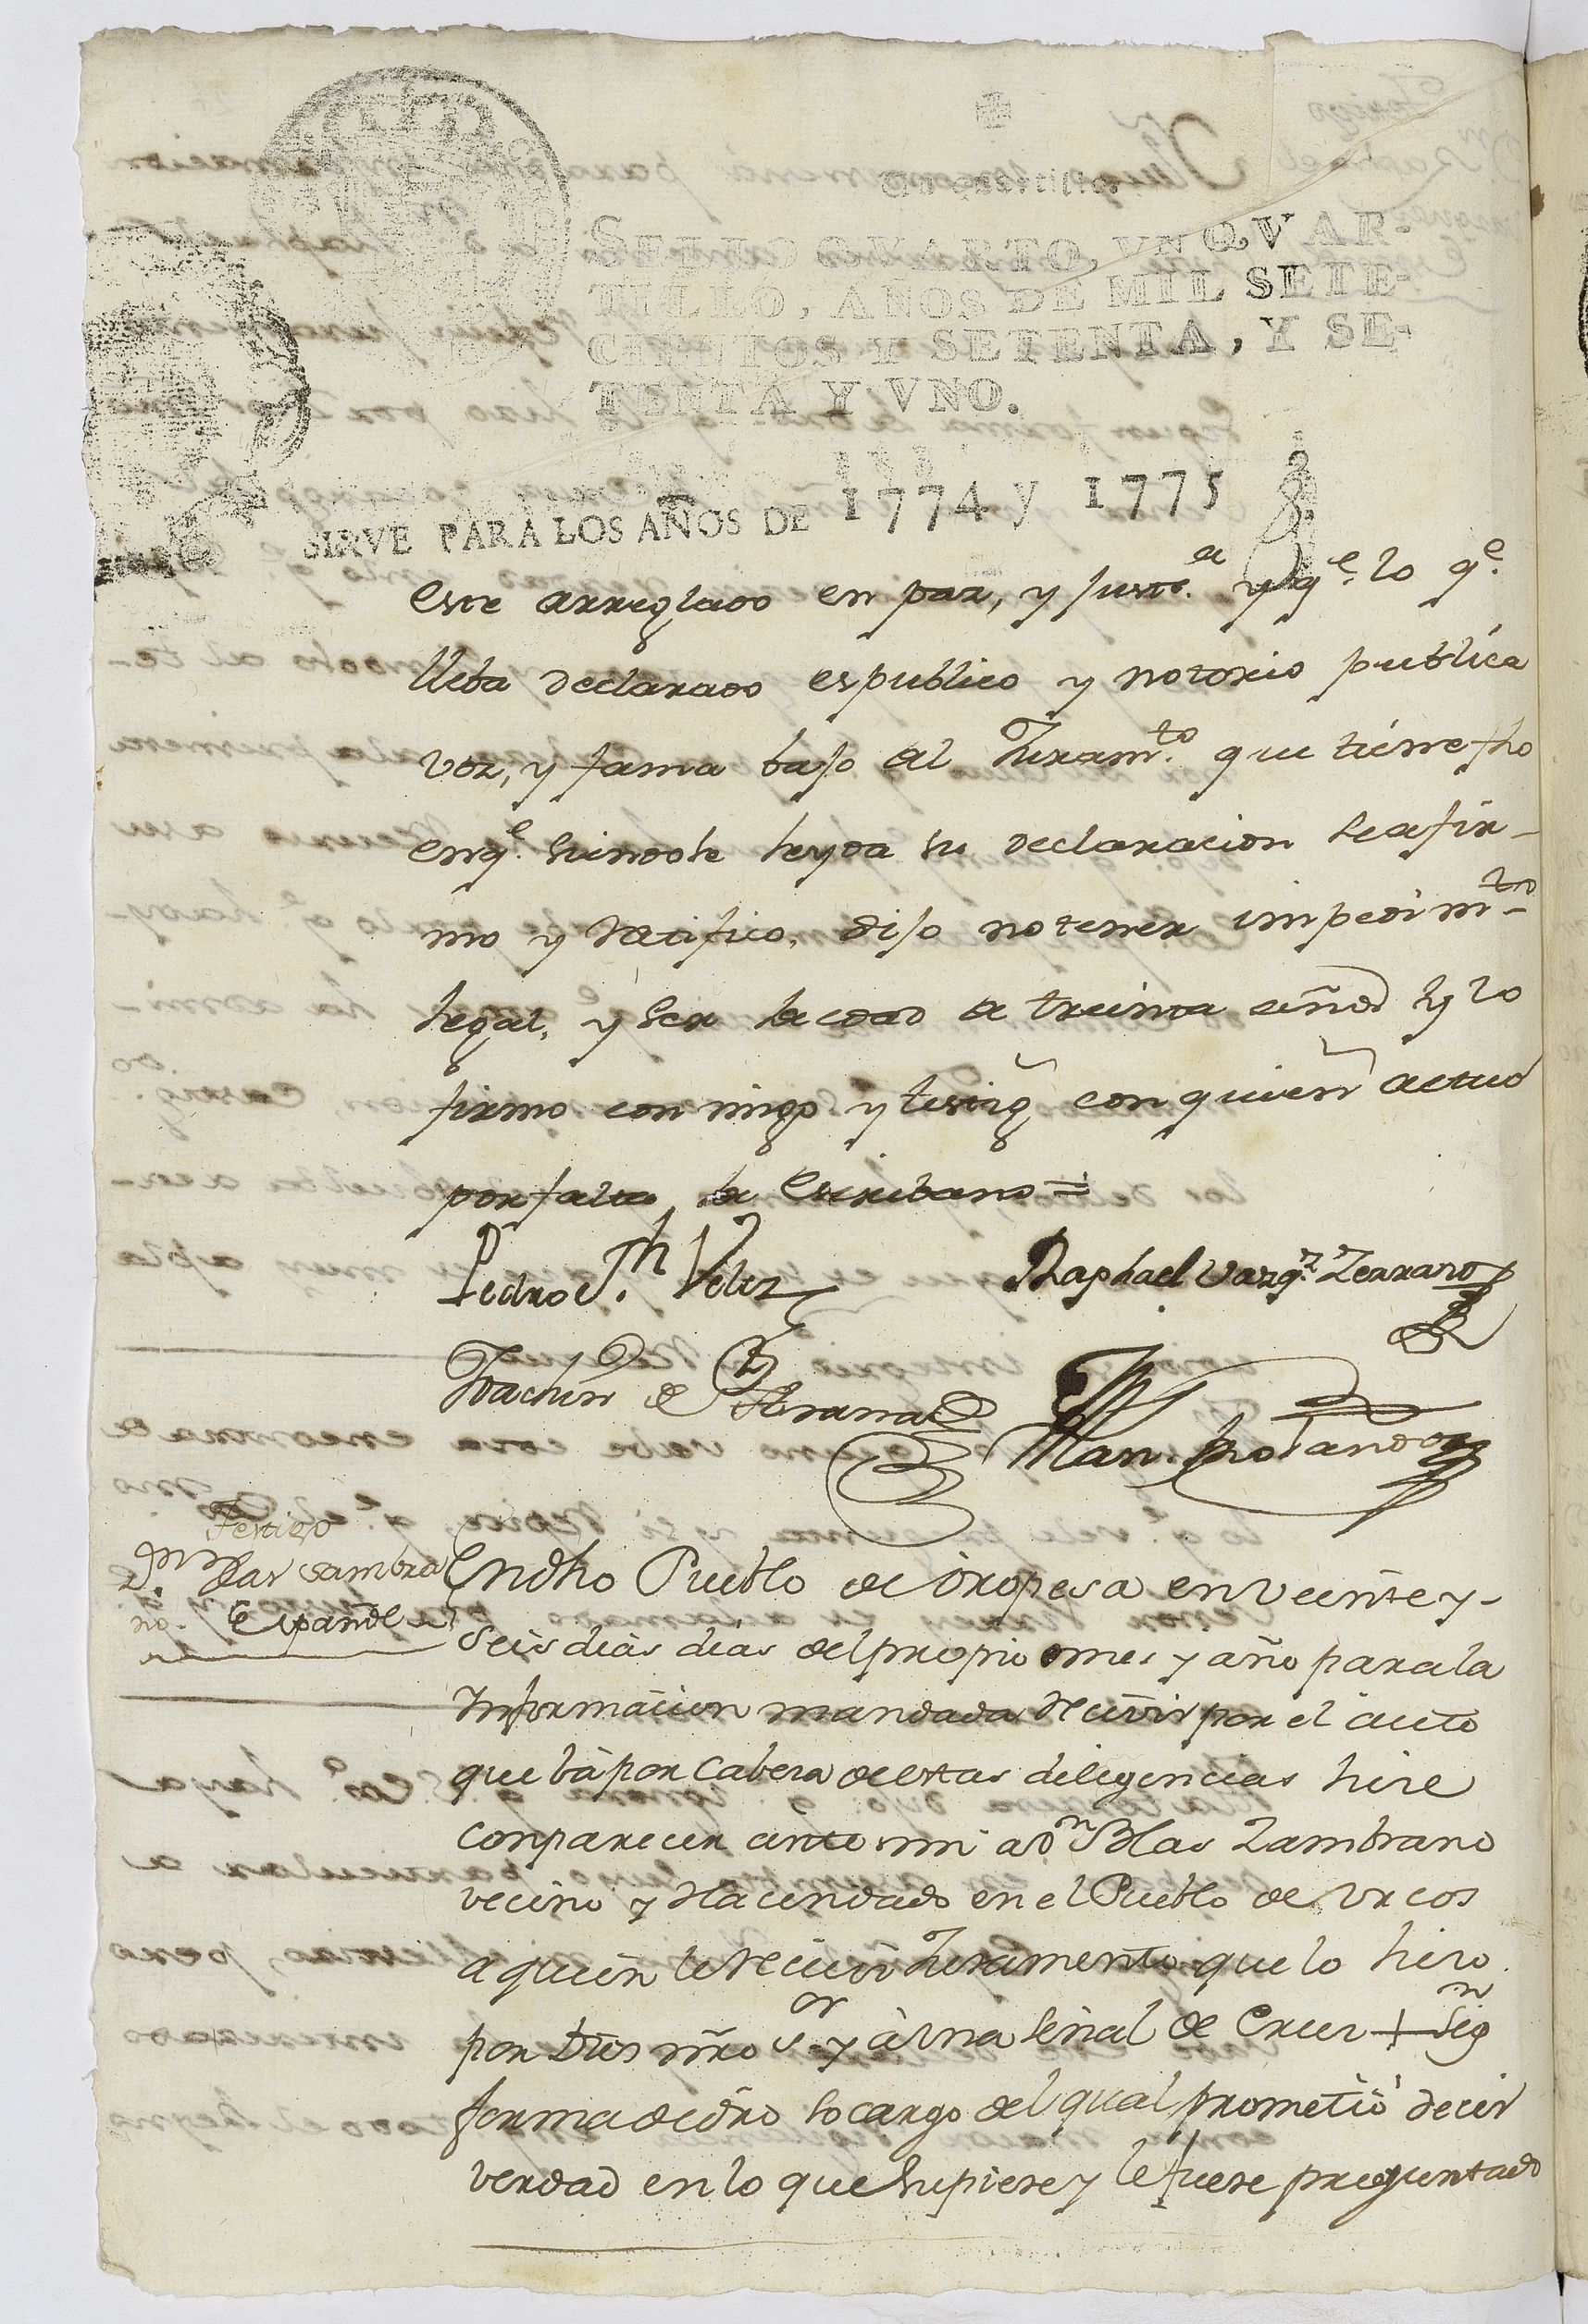 Un quartillo.
SELLO QVARTO, VN QVAR-
TILLO, AÑOS DE MIL SETE-
CIENTOS Y SETENTA, Y SE-
TENTA Y VNO.
SIRVE PARA LOS AÑOS DE 1774 y 1775
este arreglado en paz, y justa. y qe. lo qe.
lleba declarado es publico y notorio publica
voz, y fama bajo el Juramto. que tiene fho
en qe. siendole leyda su declaracion se afir-
mo y ratifico, dijo no tener impedimto-
legal, y ser de edad de treinta años y lo
firmo con migo y testigs con quienes actuo
por falta de Escribano =
Pedro Jph Velez
Raphael Vazqz. Zerrano
Joachin de Arana
Man. Holando
Testigo
Dn. Blas Sambra
no. Español
En dho Pueblo de Oropesa en veinte y-
seis dias dias del propio mes y año para la
Informacion mandada recivir por el auto
que bà por Cabeza de estas diligencias hize
conparecer ante mi a Dn Blas Zambrano
vecino y Hacendado en el Pueblo de Urcos
a quien le recivi Juramento que lo hizo
por Dios nro Sor y à una señal de Cruz + segn
forma de dro so cargo del qual prometiò decir
verdad en lo que supiere y le fuere preguntado